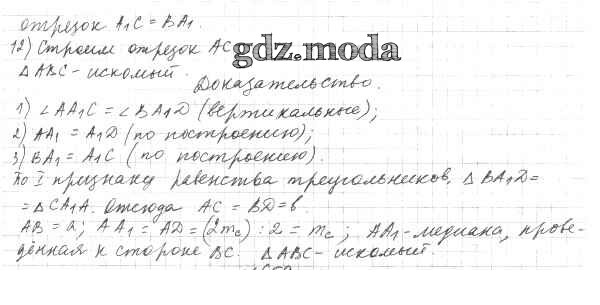 отрезок A₁C = BA₁.
12) Строим отрезок AC
gdz.moda
△ABC - искомый.
Доказательство.
1) ∠AA₁C = ∠BA₁D (вертикальные);
2) AA₁ = A₁D (по построению);
3) BA₁ = A₁C (по построению).
По I признаку равенства треугольников, △BA₁D =
= △CA₁A. Отсюда AC = BD = b.
AB = a; AA₁ = AD = (2mc) : 2 = mc; AA₁ - медиана, прове-
дённая к стороне BC. △ABC - искомый.